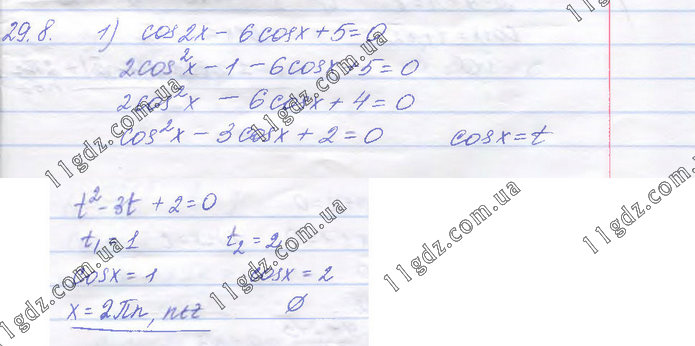 29.8. 1) cos2x - 6cosx + 5 = 0
2cos²x - 1 - 6cosx + 5 = 0
2cos²x - 6cosx + 4 = 0
cos²x - 3cosx + 2 = 0 cosx = t
t² - 3t + 2 = 0
t₁ = 1 t₂ = 2
cosx = 1 cosx = 2
x = 2πn, n∈z ∅
11gdz.com.ua
11gdz.com.ua
11gdz.com.ua
11gdz.com.ua
11gdz.com.ua
11gdz.com.ua
11gdz.com.ua